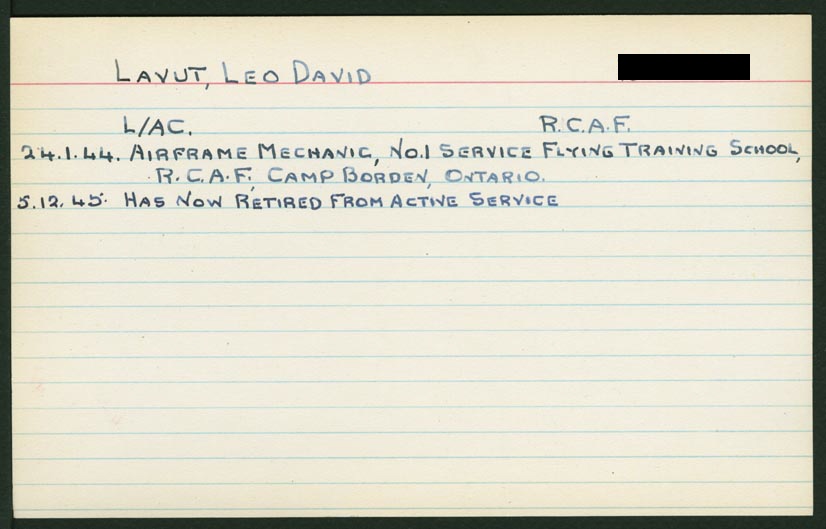 LAVUT, LEO DAVID
L/AC. R.C.A.F.
24.1.44. AIRFRAME MECHANIC, NO.1 SERVICE FLYING TRAINING SCHOOL,
R.C.A.F., CAMP BORDEN, ONTARIO.
5.12.45. HAS NOW RETIRED FROM ACTIVE SERVICE